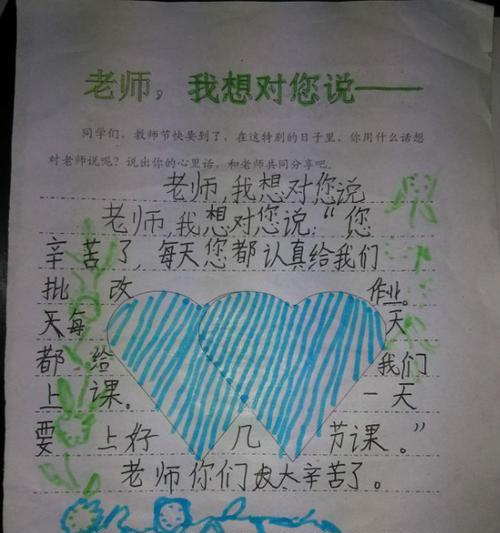 老师，我想对您说——
同学们，教师节快要到了，在这特别的日子里，你用什么话想
对老师说呢？说出你的心里话，和老师共同分享吧。
老师,我想对您说
老师,我想对您说:“您
辛苦了,每天您都认真给我们
批改作业。
天每天
都给我们
上课。一天
要上好几节课。”
老师你们太辛苦了。